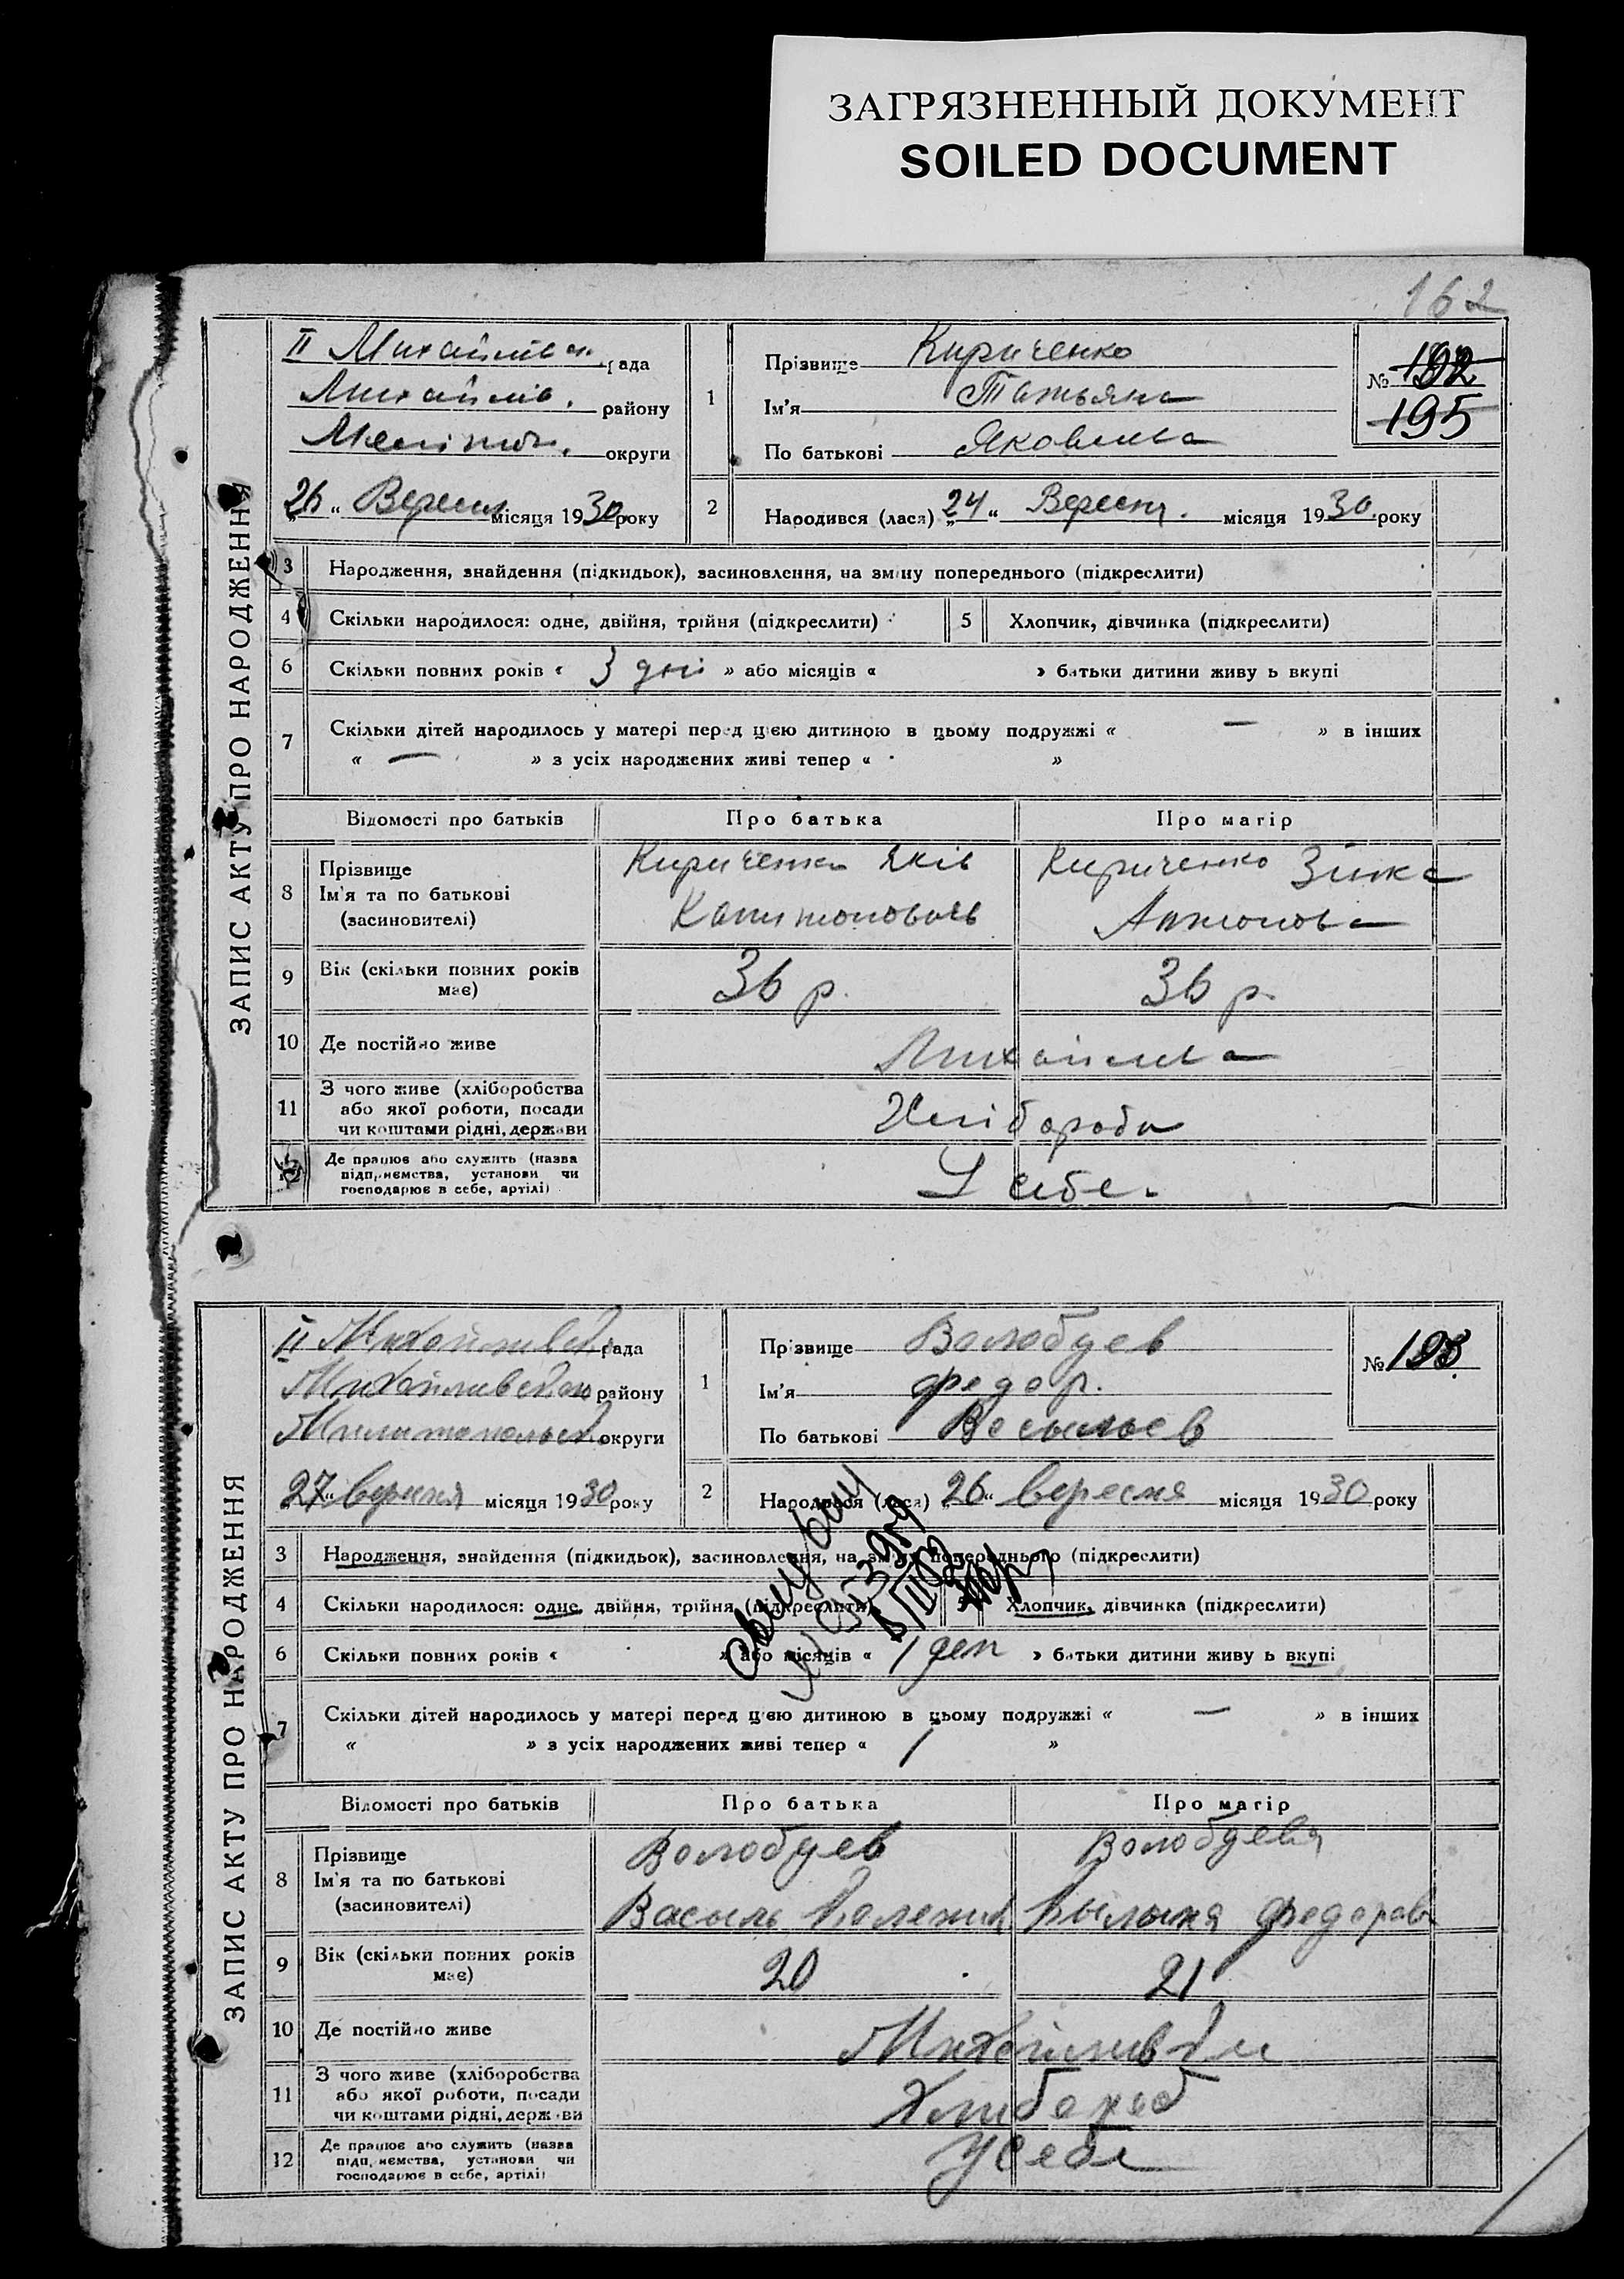 ЗАГРЯЗНЕННЫЙ ДОКУМЕНТ
SOILED DOCUMENT
162
ЗАПИС АКТУ ПРО НАРОДЖЕННЯ
II Михайлівск. рада
Михайлів. району
Меліто. округи
„26“ Вересня місяця 1930 року
1
Прізвище Кириченко
Ім'я Татьяна
По батькові Яковлева
№ 192
195
2
Народився (лася) „24“ Вересня. місяця 1930. року
3 Народження, знайдення (підкидьок), засиновлення, на зміну попереднього (підкреслити)
4 Скільки народилося: одне, двійня, трійня (підкреслити) 5 Хлопчик, дівчинка (підкреслити)
6 Скільки повних років « 3 дні » або місяців « » батьки дитини живу ь вкупі
7 Скільки дітей народилось у матері перед цією дитиною в цьому подружжі « — » в інших
« — » з усіх народжених живі тепер « »
Відомості про батьків Про батька Про матір
8 Прізвище
Ім'я та по батькові
(засиновителі)
Кириченко Яків
Капитонович
Кириченко Зінка
Антонова
9 Вік (скільки повних років має) 36 р. 36 р.
10 Де постійно живе Михайлівка
11 З чого живе (хліборобства
або якої роботи, посади
чи коштами рідні, держави
Хлібороби
12 Де працює або служить (назва
підприємства, установи чи
господарює в себе, артілі)
У себе.
ЗАПИС АКТУ ПРО НАРОДЖЕННЯ
II Михайливск рада
Михайливскою району
Милитопольск округи
„27“ вересня місяця 1930 року
1
Прізвище Волобуев
Ім'я Федор.
По батькові Васильев
№ 193.
2
Народився (лася) „26“ вересня місяця 1930 року
3 Народження, знайдення (підкидьок), засиновлення, на зміну попереднього (підкреслити)
4 Скільки народилося: одне, двійня, трійня (підкреслити) 5 Хлопчик, дівчинка (підкреслити)
6 Скільки повних років « » або місяців « 1 ден » батьки дитини живу ь вкупі
7 Скільки дітей народилось у матері перед цією дитиною в цьому подружжі « — » в інших
« » з усіх народжених живі тепер « 1 »
Відомості про батьків Про батька Про матір
8 Прізвище
Ім'я та по батькові
(засиновителі)
Волобуев
Василь
Волобуева
Федоров
9 Вік (скільки повних років має) 20 21
10 Де постійно живе
11 З чого живе (хліборобства
або якої роботи, посади
чи коштами рідні, держави
Хлибороб
12 Де працює або служить (назва
підприємства, установи чи
господарює в себе, артілі)
У себе